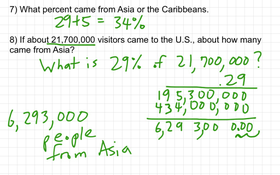 7) What percent came from Asia or the Caribbeans.
29+5 = 34%
8) If about 21,700,000 visitors came to the U.S., about how many
came from Asia?
What is 29% of 21,700,000?
.29
195,300,000
434,000,000
6,29 3,00 0.00
6,293,000
people
from Asia